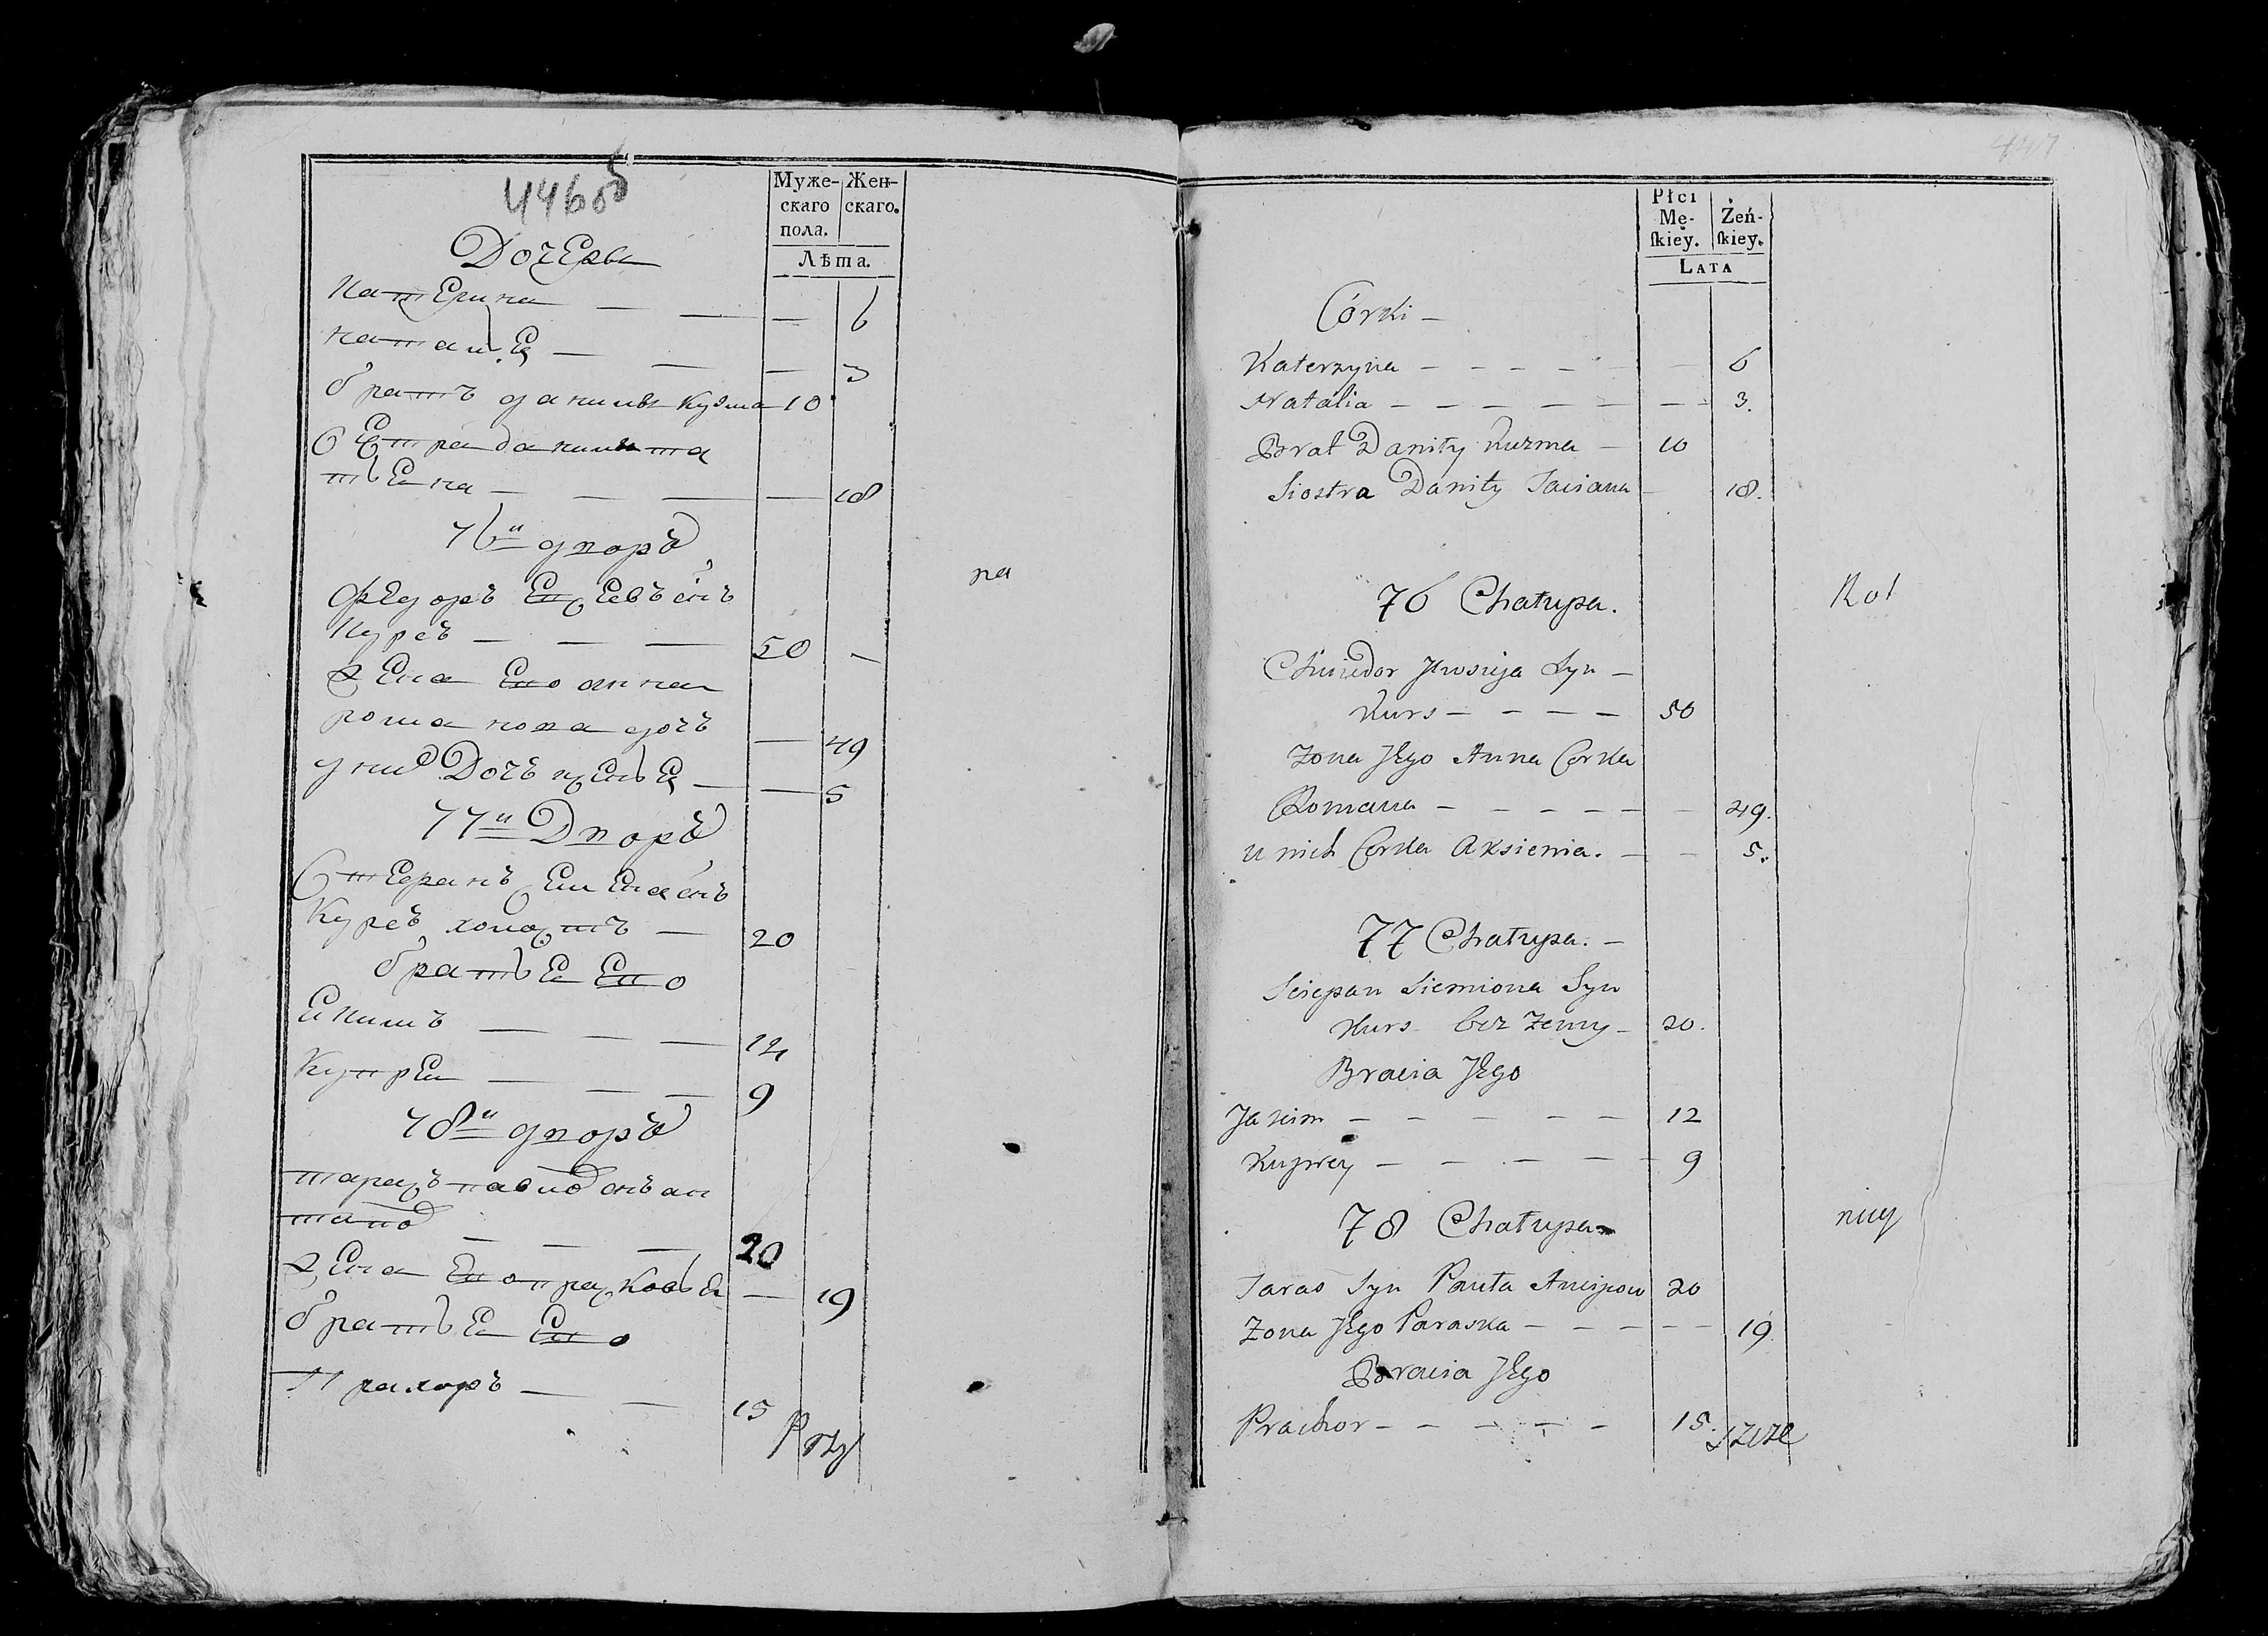 446 об
Муже-
скаго
пола.
Жен-
скаго.
Лѣта.
Дочерьи
Катерина — — — 6
наталья — — — 3
братъ данилы Кузма 10
Сестра данилы та
тьена — — — — 18
76й дворъ
федоръ евсеевъ снъ
Курсъ — — — 50 —
жена его анна
романова дочъ — 49
у них Дочъ ксенья — — 5
77й Дворъ
Степанъ семена снъ
Курсъ холостъ — 20
братья его
екимъ — — — 12
Купрей — — — 9
78й дворъ
тарасъ павла снъ ан
— — — 20
жена его прасковья — 19
братья его
Прахоръ — — 15
на
447
Płci
Mę-
skiey.
Żeń-
skiey.
LATA
Córki —
Katerzyna — — — — — — 6
Natalia — — — — — — 3.
Brat Daniły Kuzma — 10
Siostra Daniły Taciana — 18.
76 Chałupa.
Chwiedor Jewsieja Syn —
Kurs — — — — 50
Zona Jego Anna Corka
Romana — — — — — — 49.
u nich Corka Aksienia. — — 5.
77 Chałupa. —
Sciepan Siemiona Syn
Kurs bez Zenny — 20.
Bracia Jego
Jakim — — — — — 12
Kuprey — — — — — 9
78 Chałupa
Taras Syn Pauła Ancipow 20
Zona Jego Paraska — — — — 19.
Bracia Jego
Prachor — — — — — 15.
Kol